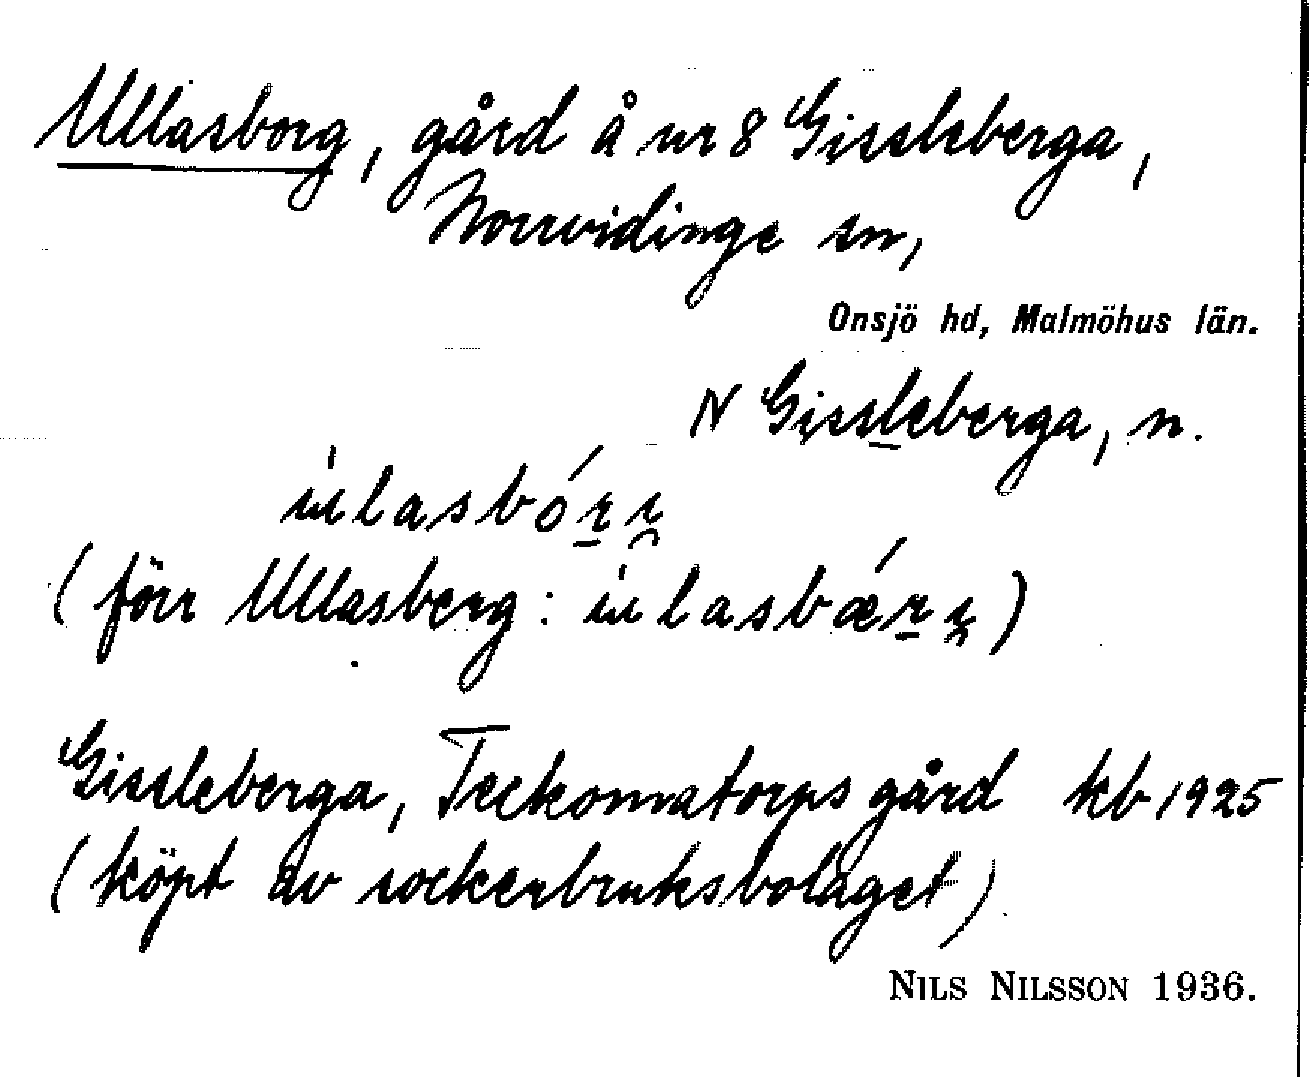 Ullasborg, gård å nr 8 Gissleberga,
Norrvidinge sn,
Onsjö hd, Malmöhus län.
N Gissleberga, n.
(förr Ullasberg:
Gissleberga, Teckomatorps gård kb 1925
(köpt av sockerbruksbolaget)
NILS NILSSON 1936.